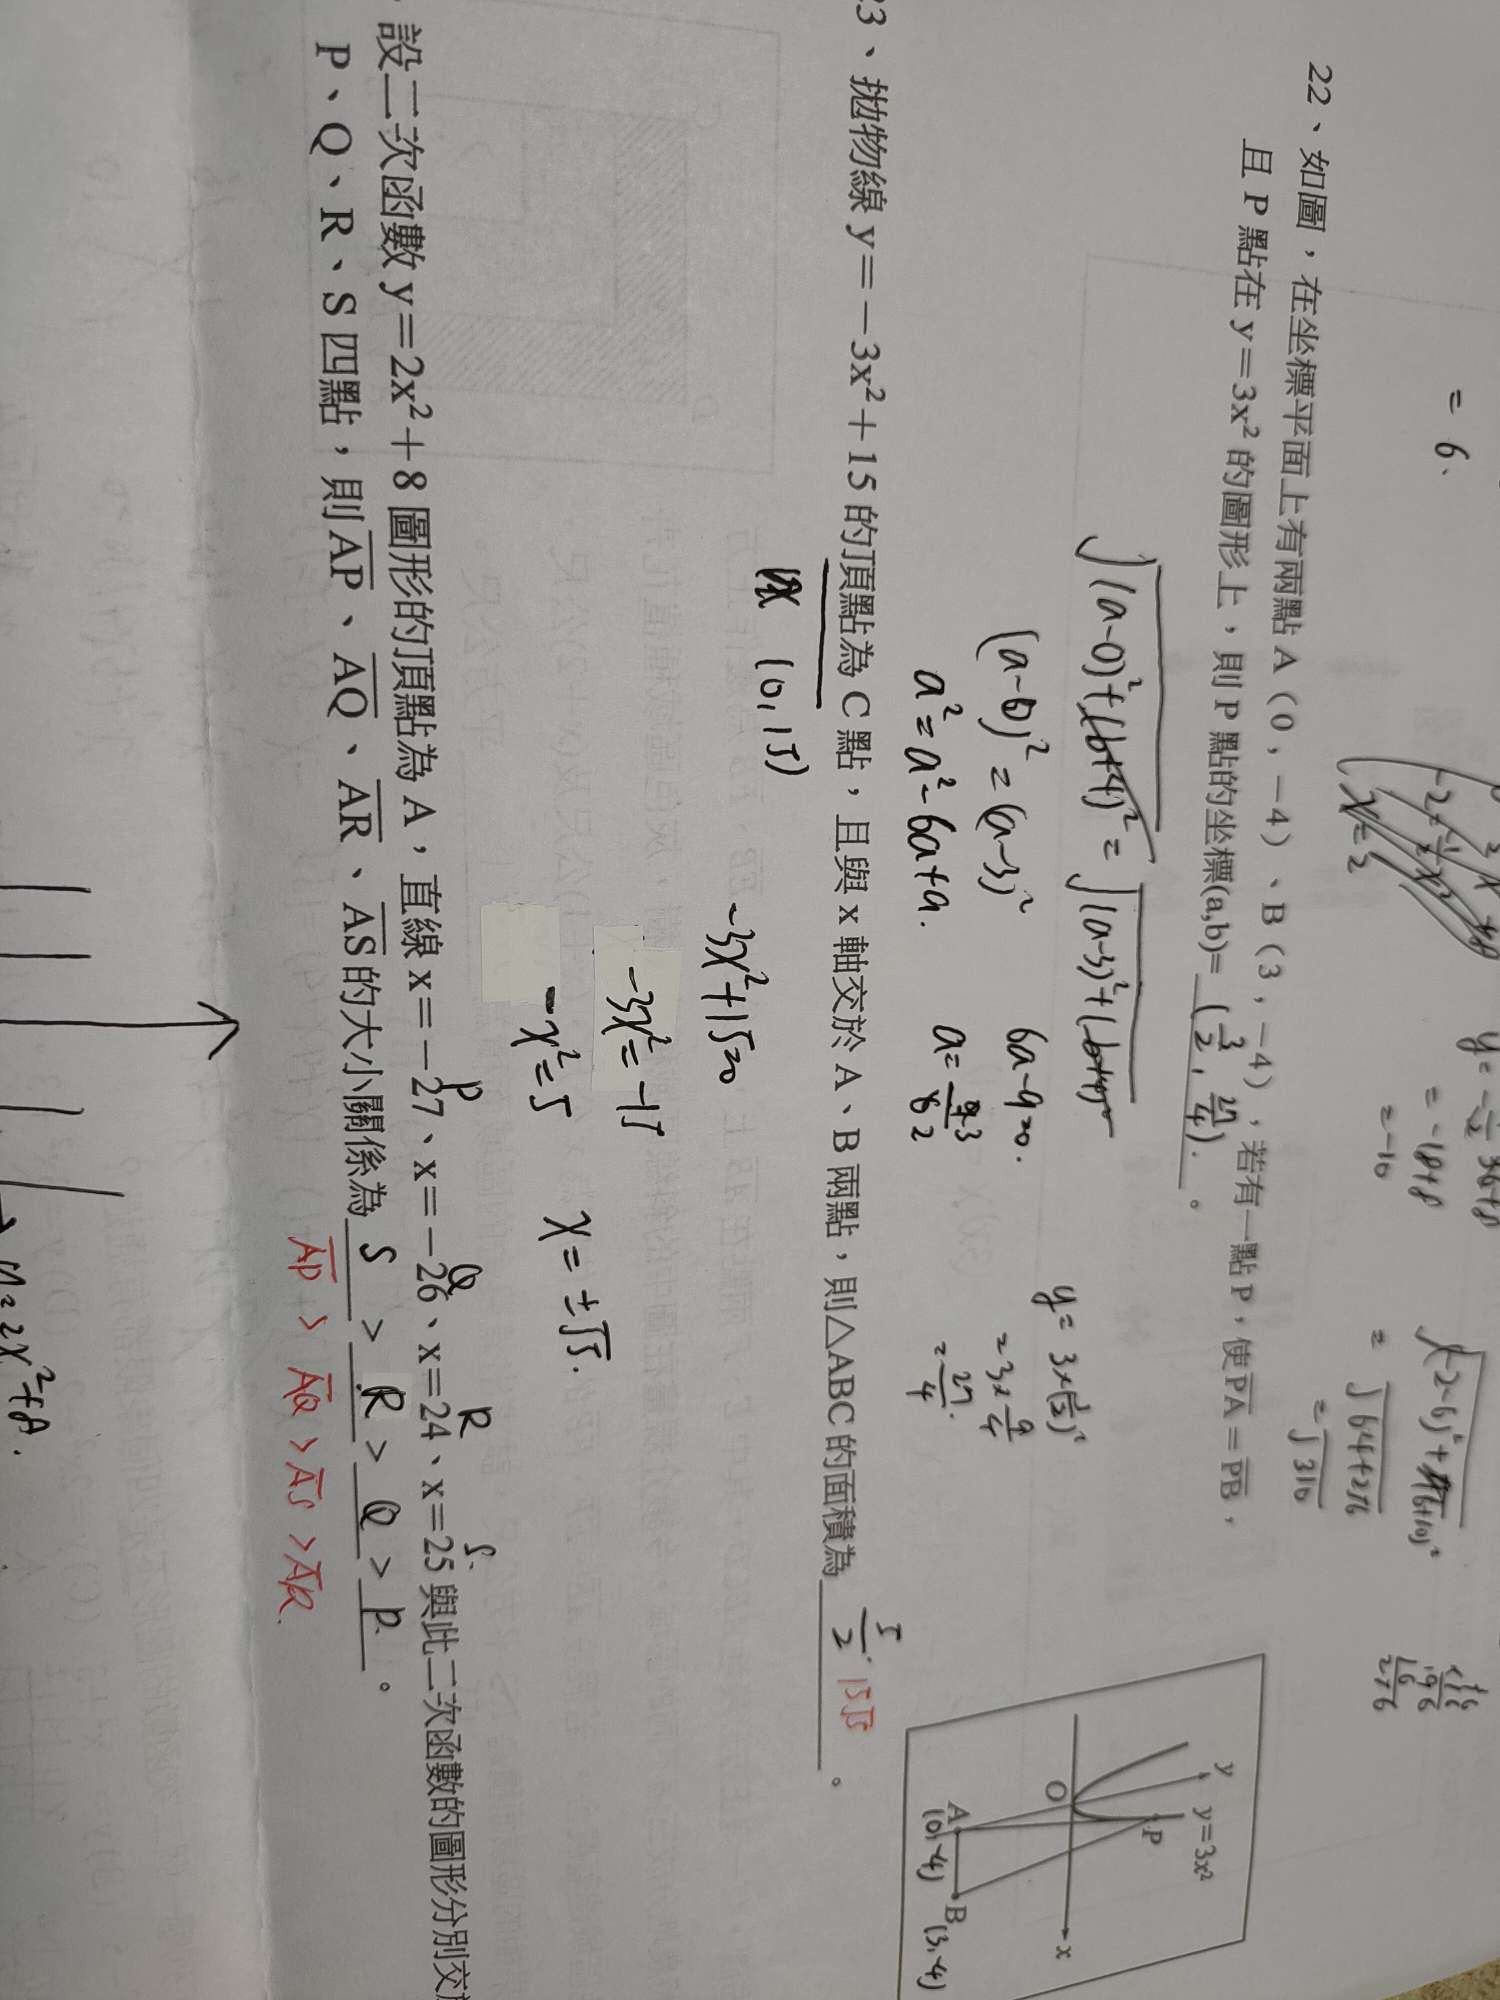 = 6.
x=2
= -18+8
= -10
= √64+256
= √310
22、如圖，在坐標平面上有兩點 A（0，－4）、B（3，－4），若有一點 P，使PA＝PB，
且 P 點在 y＝3x² 的圖形上，則 P 點的坐標(a,b)= (3/2, 27/4). 。
√(a-0)²+(b+4)² = √(a-3)²+(b+4)²
(a-0)² = (a-3)²
a² = a²-6a+9.
6a-9=0.
a= 9/6 3/2
= 3× 9/4
= 27/4.
y
y=3x²
P
O
x
A
B
(0,-4)
(3,-4)
23、拋物線 y＝－3x²＋15 的頂點為 C 點，且與 x 軸交於 A、B 兩點，則△ABC 的面積為 5/2. 15√5 。
(0,15)
-3x²+15=0
-3x²=-15
-x²=5
x=±√5.
設二次函數 y＝2x²＋8 圖形的頂點為 A，直線 x＝－27、x＝－26、x＝24、x＝25 與此二次函數的圖形分別交
P Q R S.
P、Q、R、S 四點，則 AP、AQ、AR、AS 的大小關係為 S > R > Q > P. 。
AP > AQ > AS > AR.
y=2x²+8.